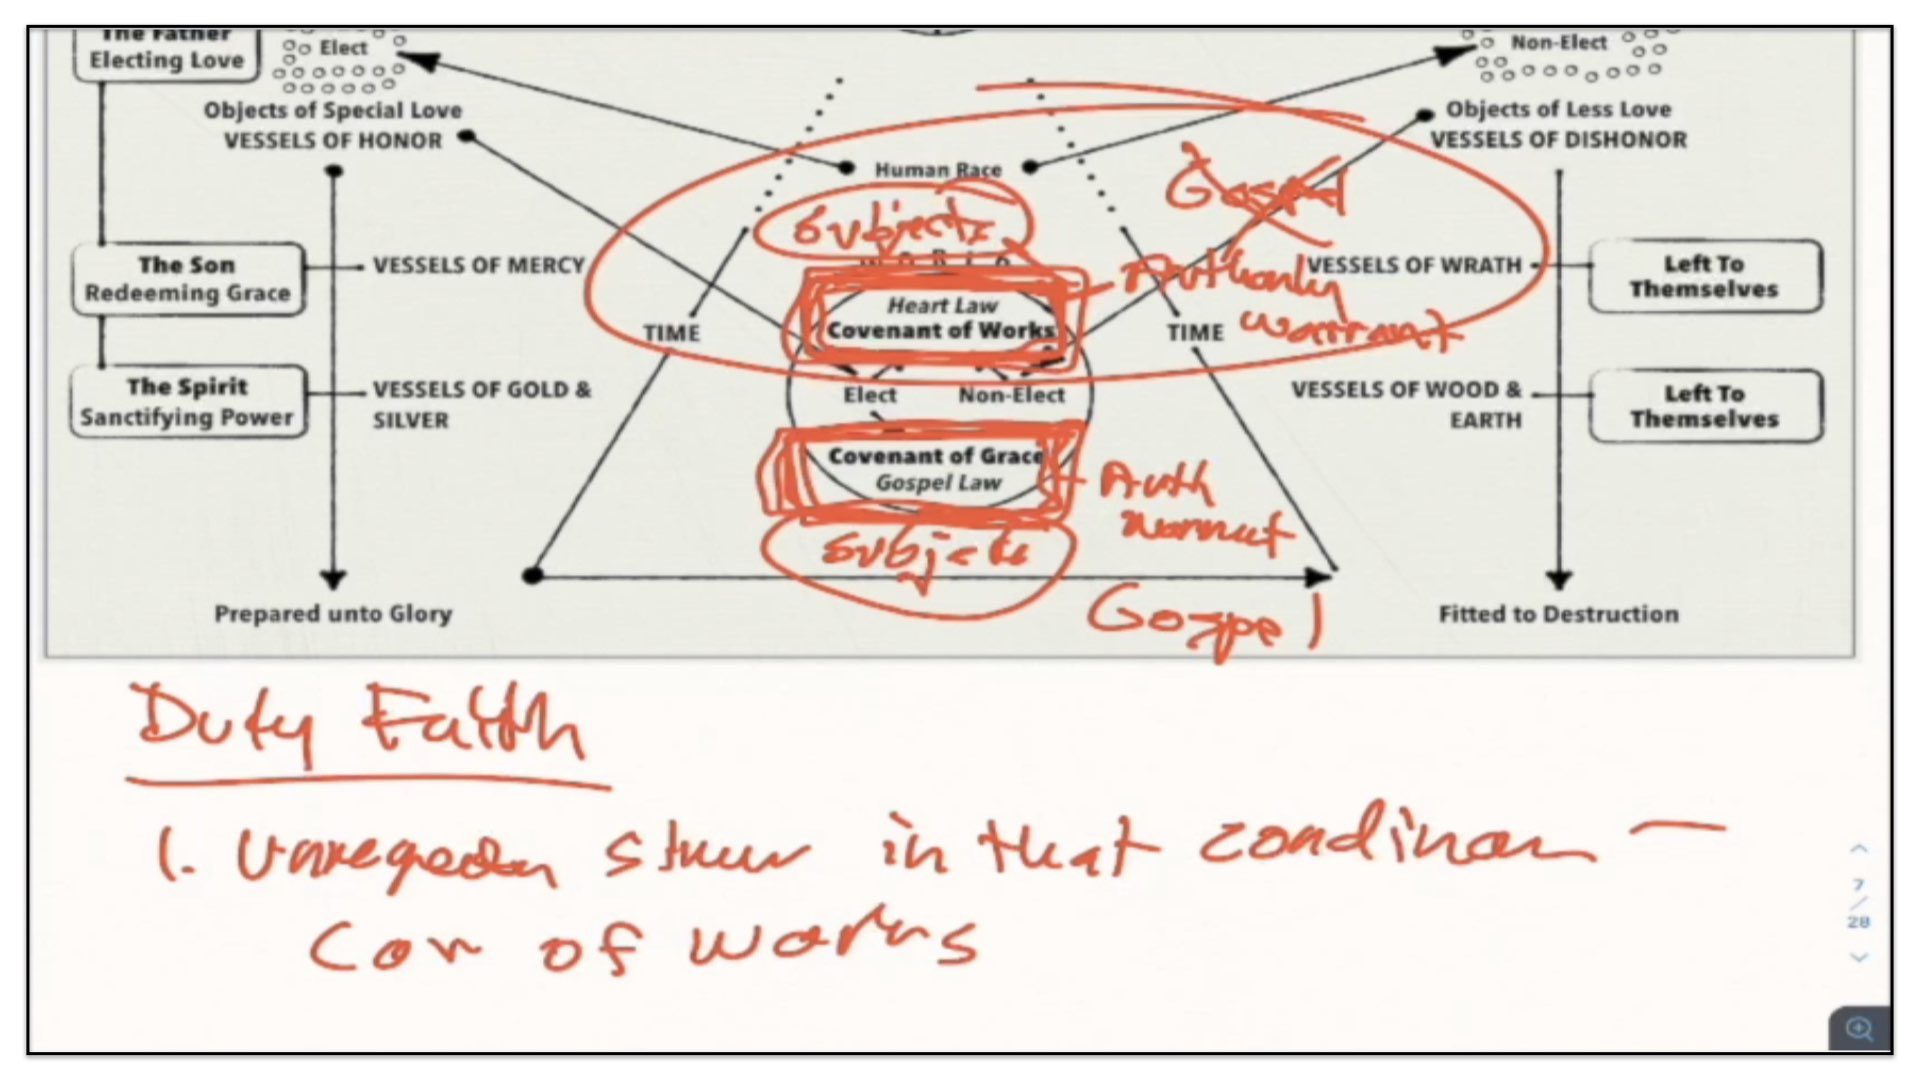 The Father
Electing Love
Elect
Non-Elect
Objects of Special Love
VESSELS OF HONOR
Objects of Less Love
VESSELS OF DISHONOR
Human Race
Gospel
Subjects
The Son
Redeeming Grace
VESSELS OF MERCY
VESSELS OF WRATH
Left To
Themselves
Heart Law
Covenant of Works
TIME
TIME
warrant
The Spirit
Sanctifying Power
VESSELS OF GOLD &
SILVER
Elect
Non-Elect
VESSELS OF WOOD &
EARTH
Left To
Themselves
Covenant of Grace
Gospel Law
Auth
Subjects
Gospel
Prepared unto Glory
Fitted to Destruction
Duty Faith
1. in that
Cov of works
7
/
28